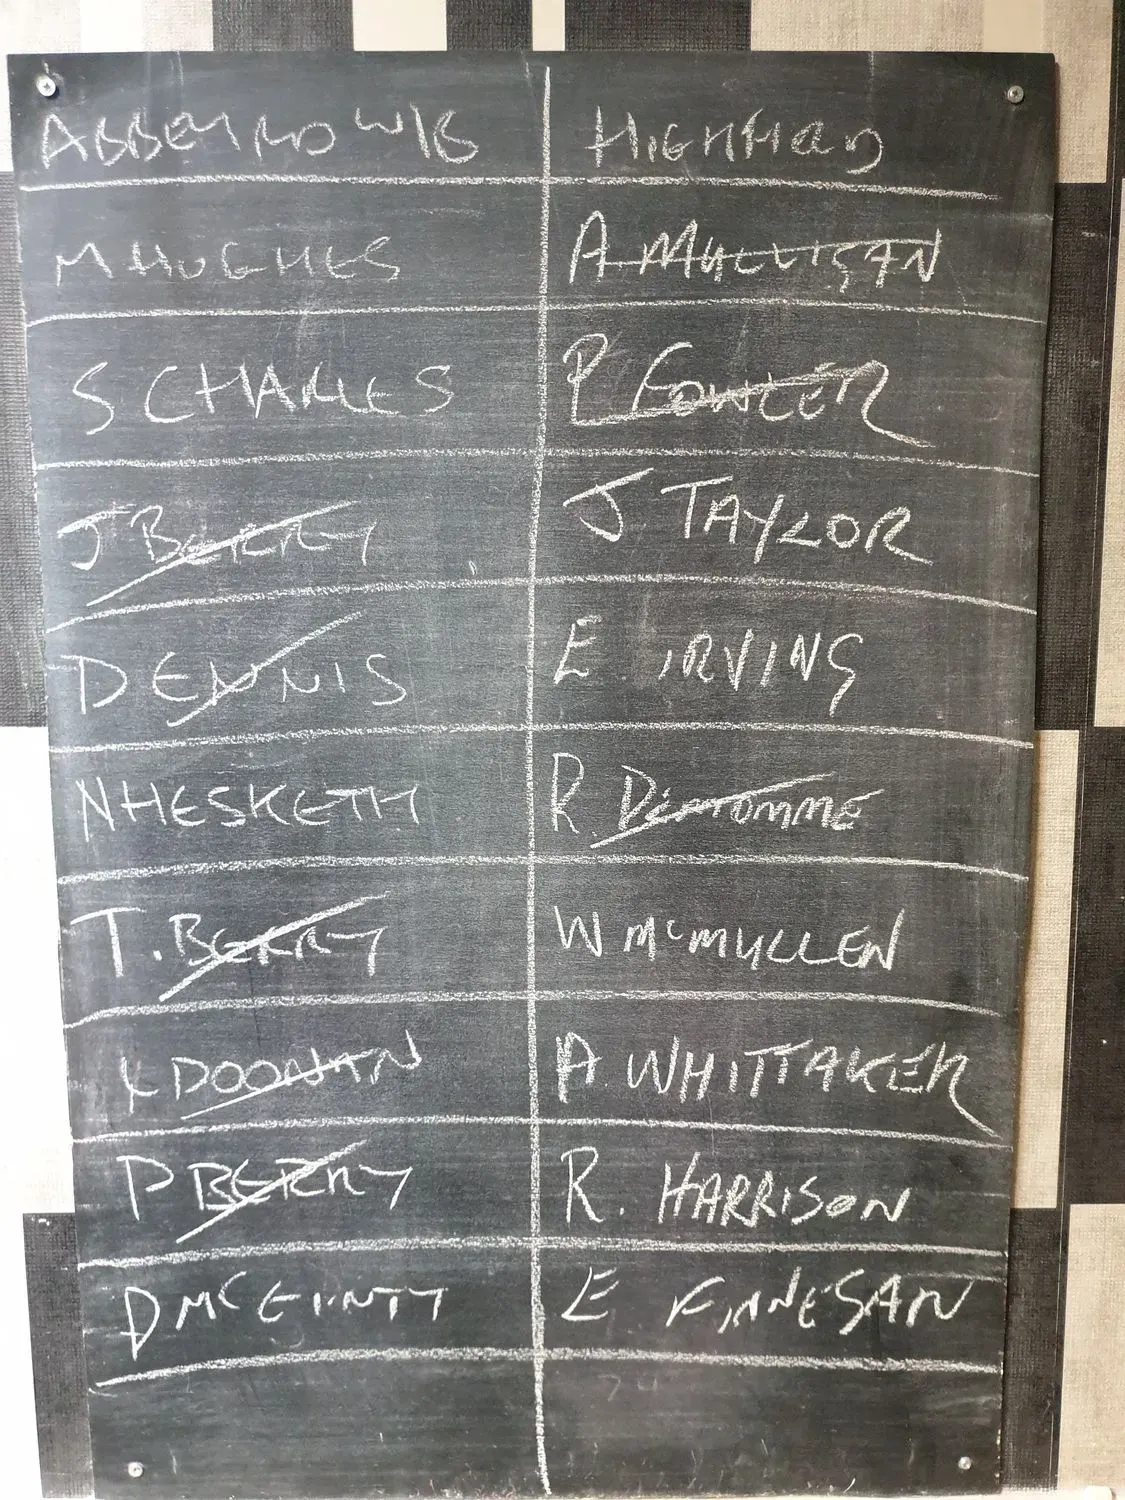 HIGHFIELD
M HUGHES
A MULLIGAN
S CHARLES
P FOWLER
J BERRY
J TAYLOR
DENNIS
E IRVING
N HESKETH
R.
T. BERRY
W McMULLEN
DOONAN
A. WHITTAKER
P BERRY
R. HARRISON
D McGINTY
E